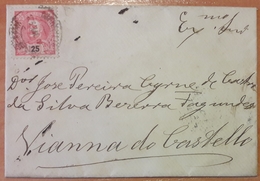 25
Ex.mo Snr.
Dor. Jose Pereira Cyrne de Castro
da Silva Bezerra Fagundes
Vianna do Castello